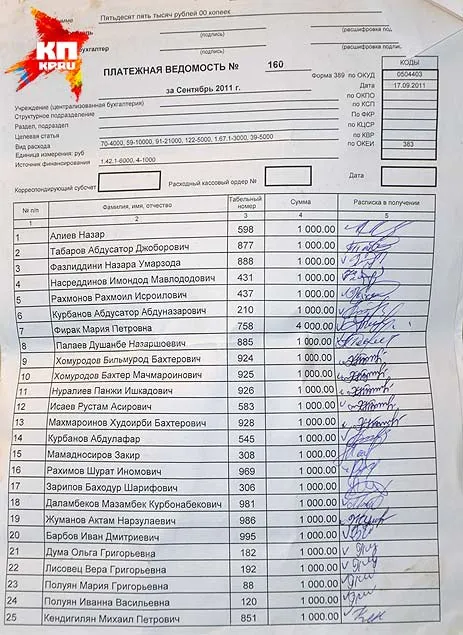 Пятьдесят пять тысяч рублей 00 копеек
КП
KP.RU
(подпись)
(расшифровка под
бухгалтер
(подпись)
(расшифровка подпи
ПЛАТЕЖНАЯ ВЕДОМОСТЬ № 160
КОДЫ
Форма 389 по ОКУД 0504403
за Сентябрь 2011 г.
Дата 17.09.2011
Учреждение (централизованная бухгалтерия)
по ОКПО
Структурное подразделение
по КСП
Раздел, подраздел
По ФКР
Целевая статья
по КЦСР
Вид расхода 70-4000, 59-10000, 91-21000, 122-5000, 1.67.1-3000, 39-5000
по КВР
Единица измерения: руб
по ОКЕИ 383
Источник финансирования 1.42.1-6000, 4-1000
Корреспондирующий субсчет
Расходный кассовый ордер №
Дата
№ п/п Фамилия, имя, отчество Табельный номер Сумма Расписка в получении
1 2 3 4 5
1 Алиев Назар 598 1 000.00
2 Табаров Абдусатор Джоборович 877 1 000.00
3 Фазлиддини Назара Умарзода 888 1 000.00
4 Насреддинов Имондод Мавлододович 431 1 000.00
5 Рахмонов Рахмоил Исроилович 437 1 000.00
6 Курбанов Абдусатор Абдуназарович 210 1 000.00
7 Фирак Мария Петровна 758 4 000.00
8 Палаев Душанбе Назаршоевич 885 1 000.00
9 Хомуродов Бильмурод Бахтерович 924 1 000.00
10 Хомуродов Бахтер Мачмароинович 925 1 000.00
11 Нуралиев Панжи Ишкадович 926 1 000.00
12 Исаев Рустам Асирович 583 1 000.00
13 Махмароинов Худоирби Бахтерович 928 1 000.00
14 Курбанов Абдулафар 545 1 000.00
15 Мамадносиров Закир 308 1 000.00
16 Рахимов Шурат Иномович 969 1 000.00
17 Зарипов Баходур Шарифович 306 1 000.00
18 Даламбеков Мазамбек Курбонабекович 981 1 000.00
19 Жуманов Актам Нарзулаевич 986 1 000.00
20 Барбов Иван Дмитриевич 995 1 000.00
21 Дума Ольга Григорьевна 182 1 000.00
22 Лисовец Вера Григорьевна 192 1 000.00
23 Полуян Мария Григорьевна 88 1 000.00
24 Полуян Иванна Васильевна 120 1 000.00
25 Кендигилян Михаил Петрович 851 1 000.00